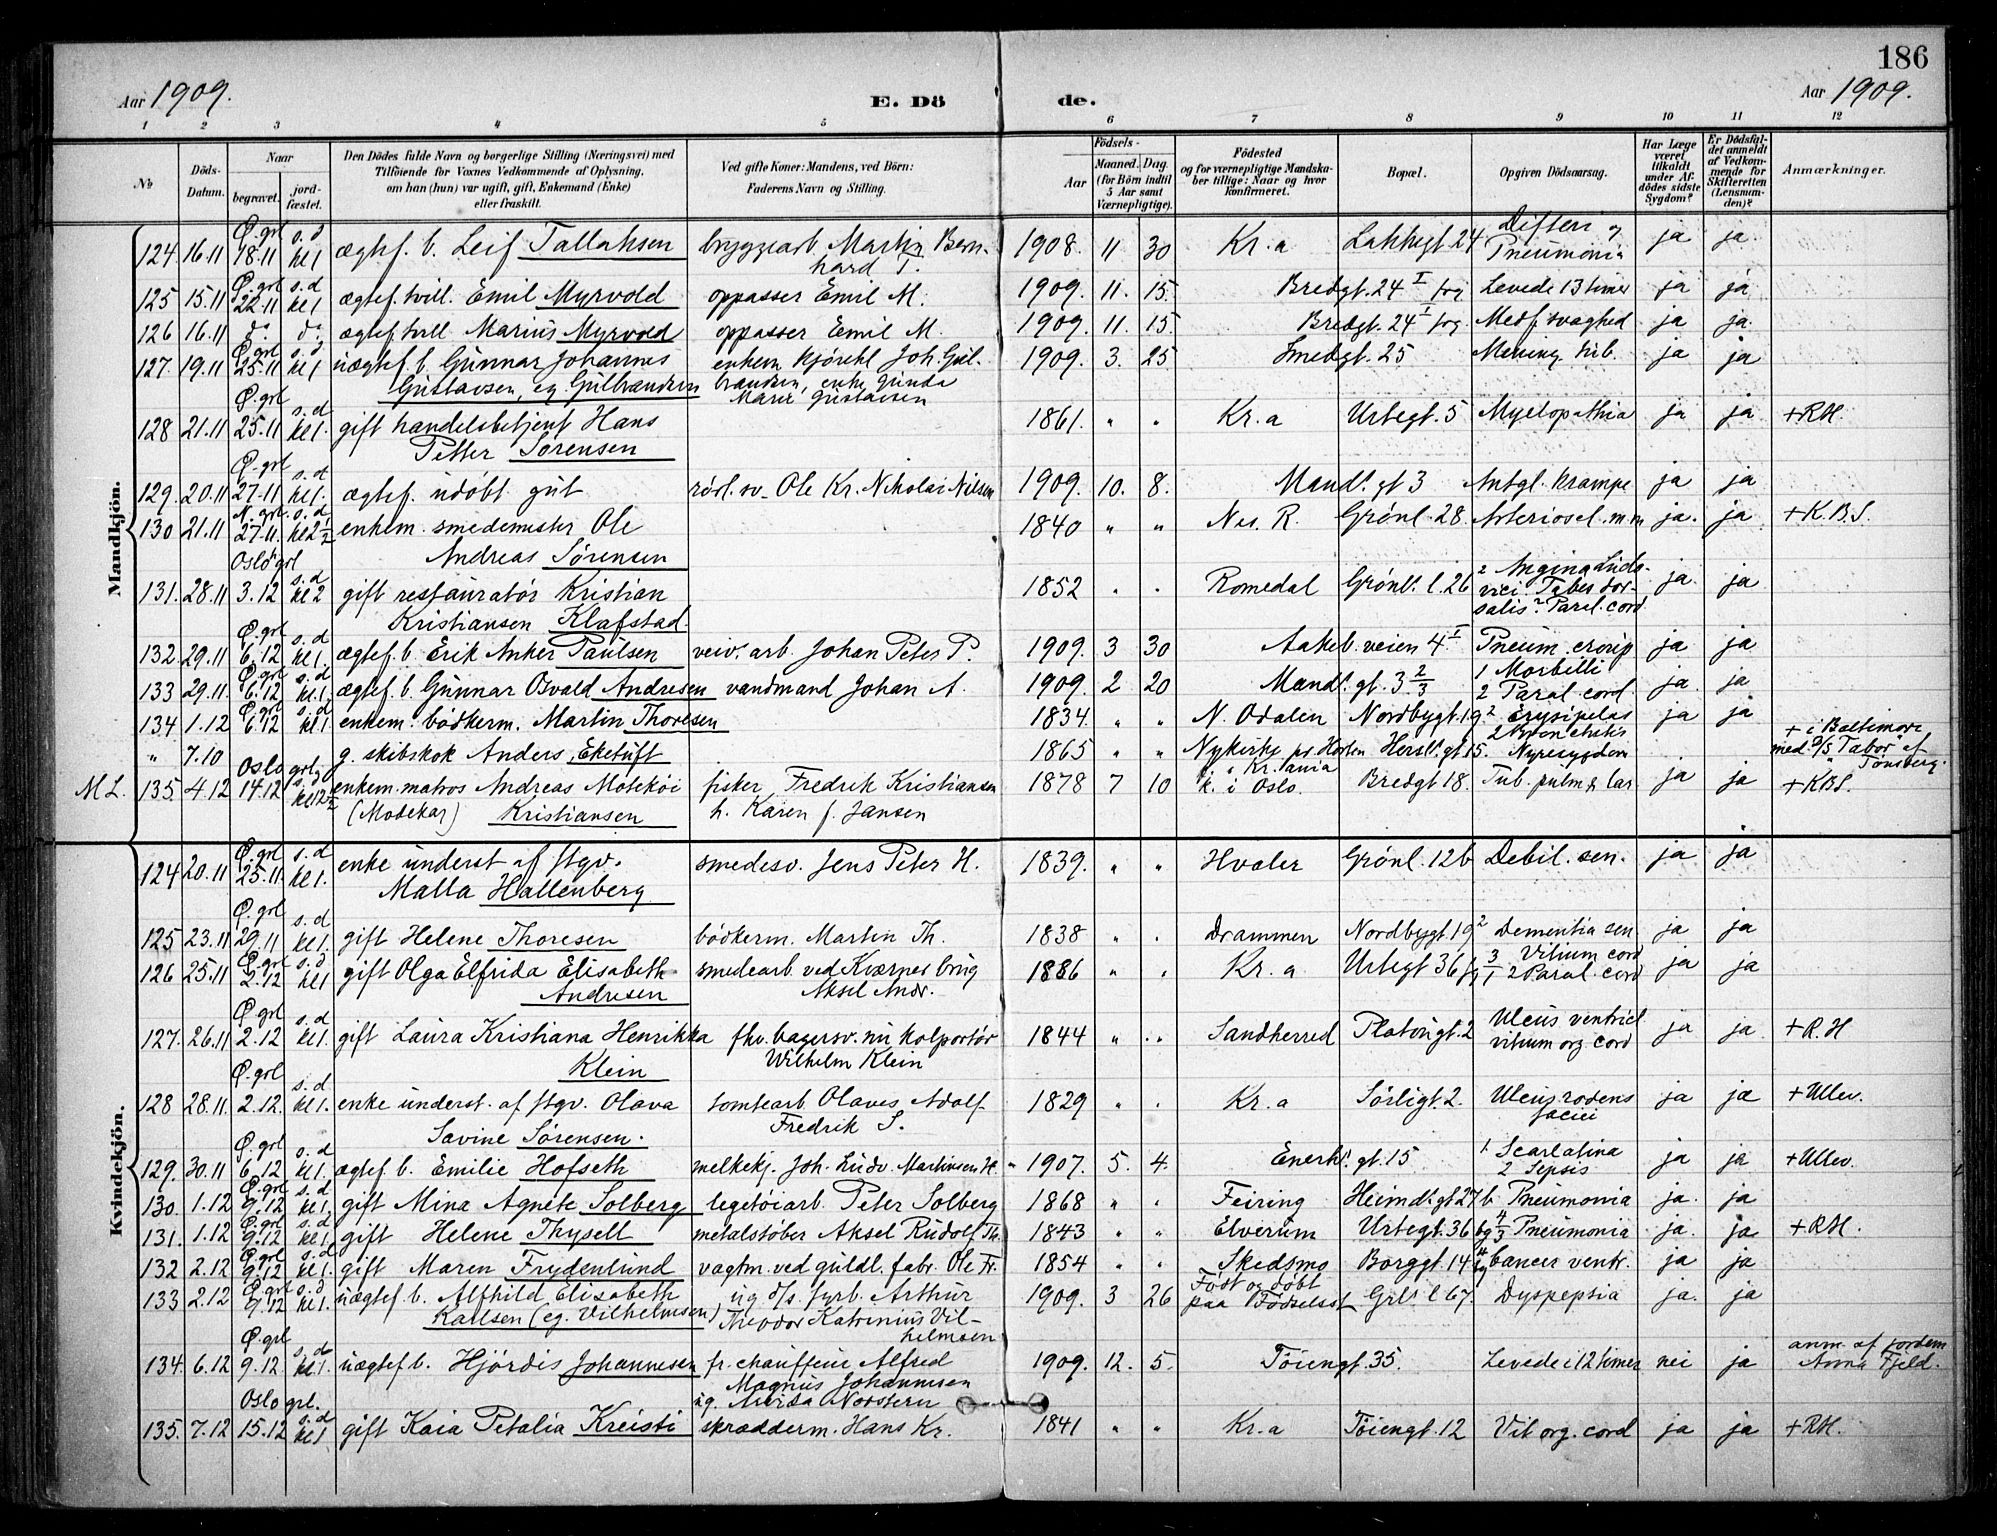 186
Aar 1909. E. Dö de. Aar 1909.
1 2 3 4 5 6 7 8 9 10 11 12
No
Döds-Datum.
Naar
begravet.
jord-fæstet.
Den Dödes fulde Navn og borgerlige Stilling (Næringsvei) med
Tilföiende for Voxnes Vedkommende af Oplysning,
om han (hun) var ugift, gift, Enkemand (Enke)
eller fraskilt.
Ved gifte Koner: Mandens, ved Börn:
Faderens Navn og Stilling.
Födsels-
Aar
Maaned. Dag.
(for Börn indtil
5 Aar samt
Værnepligtige).
Födested
og for værnepligtige Mandska-
ber tillige: Naar og hvor
konfirmeret.
Bopæl.
Opgiven Dödsaarsag.
Har Læge
været
tilkaldt
under Af-
dödes sidste
Sygdom?
Er Dödsfal-
det anmeldt
af Vedkom-
mende for
Skifteretten
(Lensman-
den)?
Anmærkninger.
Mandkjön.
Ø. grl s. d
124 16.11 18.11 kl 1 ægtef. b. Leif Tallaksen bryggearb Martin Bern- 1908. 11 30 Kr. a Lakkegt 24 Difteri og ja ja.
hard T. Pneumonia
Ø. grl s. d
125 15.11 22.11 kl 1 ægtef. tvill. Emil Myrvold oppasser Emil M. 1909. 11. 15. Bredgt. 24 I Levede 13 timer ja ja
126 16.11 do do ægtef tvill Marius Myrvold oppasser Emil M. 1909. 11. 15 Bredgt. 24 I Medf svaghed ja ja.
Ø. grl s. d
127. 19.11 25.11 kl 1 uægtef. b. Gunnar Johannes enkem kjørekl Joh. Gul- 1909. 3. 25 Smedgt. 25 Mening tub. ja ja
Gustavsen, eg. Gulbrandsen brandsen, enke Gunda
Marie Gustavsen
Ø. grl s. d
128 21.11 25.11 kl 1. gift handelsbetjent Hans 1861. " " Kr. a Urtegt. 5 Myelopathia ja ja +RH.
Petter Sørensen
Ø. grl s. d
129. 20.11 27.11 kl 1. ægtef. udøbt gut rørl. sv. Ole Kr. Nikolai Nilsen 1909. 10. 8. Mandl. gt 3 Antgl. krampe ja ja
N. grl. s. d
130 21.11 27.11. kl 2 1/2 enkem. smedemester Ole 1840 " " Nes. R. Grønl. 28. Arteriosel. m.m ja. ja +K.B.S.
Andreas Sørensen
Oslo grl s. d
131. 28.11 3.12 kl 2 gift restauratør Kristian 1852 " " Romedal Grønl. l. 26 2 Angina Ludo- ja. ja
Kristiansen Klafstad vici. Tabes dor-
salis? Paral. cord
Ø. grl s. d
132. 29.11 6.12 kl 1. ægtef. b. Erik Anker Paulsen veiv. arb. Johan Peter P. 1909. 3 30 Aakeb. veien 4 I Pneum. croup ja ja
Ø. grl s. d
133 29.11 6.12 kl 1. ægtef. b. Gunnar Osvald Andresen vandmand Johan A. 1909. 2 20 Mandl. gt. 3 2/3 1 Morbilli ja. ja
2 Paral. cord.
Ø. grl s. d
134. 1.12 6.12 kl 1 enkem. bødkerm. Martin Thoresen 1834. " " N. Odalen Nordbygt. 19 2 Erysipelas ja ja
" 7.10 g. skibskok Anders Eketuft 1865 " " Nykirke pr Horten Hersl. gt. 15. Nyresygdom + i Baltimore
med D/S "Tabor" af
Tønsberg.
Oslo grl. s. d
ML. 135. 4.12 14.12 kl 12 1/2 enkem. matros Andreas Motekøi fisker Fredrik Kristiansen 1878 7 10 Kr.ania Bredgt 18. Tub. pulm & lar. ja ja +KBS.
(Modekar) Kristiansen h. Karen f. Jansen k. i Oslo.
Kvindekjön.
Ø. grl s. d
124 20.11 25.11. kl 1. enke underst. af ftgv. smedesv. Jens Peter H. 1839. " " Hvaler Grønl. 12b Debil. sen. ja ja
Malla Hallenberg
Ø. grl s. d
125 23.11 29.11 kl 1. gift Helene Thoresen bødkerm. Martin Th. 1838 " " Drammen Nordbygt. 19 2 Dementia sen ja ja
Ø. grl s. d
126 25.11 2.12 kl 1 gift Olga Elfrida Elisabeth smedearb ved Kværner brug 1886 " " Kr. a Urtegt 36 3/1 Vitium cord ja ja
Andresen Aksel Andr. 2 Paral. cord
Ø. grl s. d
127. 26.11 2.12 kl 1. gift Laura Kristiana Henrikka fhv. bagersv. nu kolportør 1844 " " Sandherred Platougt. 2 Ulcus ventricl ja ja +R.H
Klein Wilhelm Klein vitium org cord
Ø. grl s. d
128 28.11. 2.12. kl 1. enke underst. af ftgv. Olava tomtearb Olaves Adolf 1829 " " Kr. a Sørligt. 2. Ulcus rodens ja ja +Ullev.
Savine Sørensen. Fredrik S. faciei
Ø. grl s. d
129. 30.11 6.12 kl 1. ægtef b. Emilie Hofseth melkekj. Joh. Ludv. Martinsen H. 1907. 5. 4. Enerh. gt. 15 1. Scarlatina ja ja +Ullev.
2 Sepsis
Ø. grl s. d
130. 1.12 9.12 kl 1. gift Mina Agnete Solberg legetøiarb. Peter Solberg 1868 " " Feiring Heimdl. gt 27 b. Pneumonia ja. ja
Ø. grl s. d
131. 1.12 9.12 kl 1. gift Helene Thysell metalstøber Aksel Rudolf Th. 1843 " " Elverum Urtegt. 36 4/3 Pneumonia ja. ja +RH.
Ø. grl s. d
132 2.12 9.12 kl 1. gift Maren Frydenlund vagtm. ved guldl. fabr. Ole Fr. 1854 " " Skedsmo Borggt. 14 Cancer ventr. ja ja
Ø. grl s. d
133 2.12 9.12 kl 1. uægtef b. Alfhild Elisabeth ug d/s. fyrb. Arthur 1909. 3 26 Født og døbt Grl. l 67. Dyspepsia ja. ja
Karlsen (eg. Vilhelmsen) Theodor Katrinius Vil- paa Fødselsst
helmsen
Ø. grl s. d
134. 6.12 9.12 kl 1. uægtef b. Hjørdis Johannesen fr. chauffeur Alfred 1909. 12. 5. Tøiengt. 35. Levede i 12 timer nei ja anm. af jordem
Magnus Johannesen Anna Fjeld.
ug. Norstern
Oslo grl. s. d
135. 7.12 15.12 kl 1 gift Kaia Petalia Kreisti skrædderm. Hans Kr. 1841 " " Kr. a Tøiengt. 12 Vit org. cord ja ja +RH.